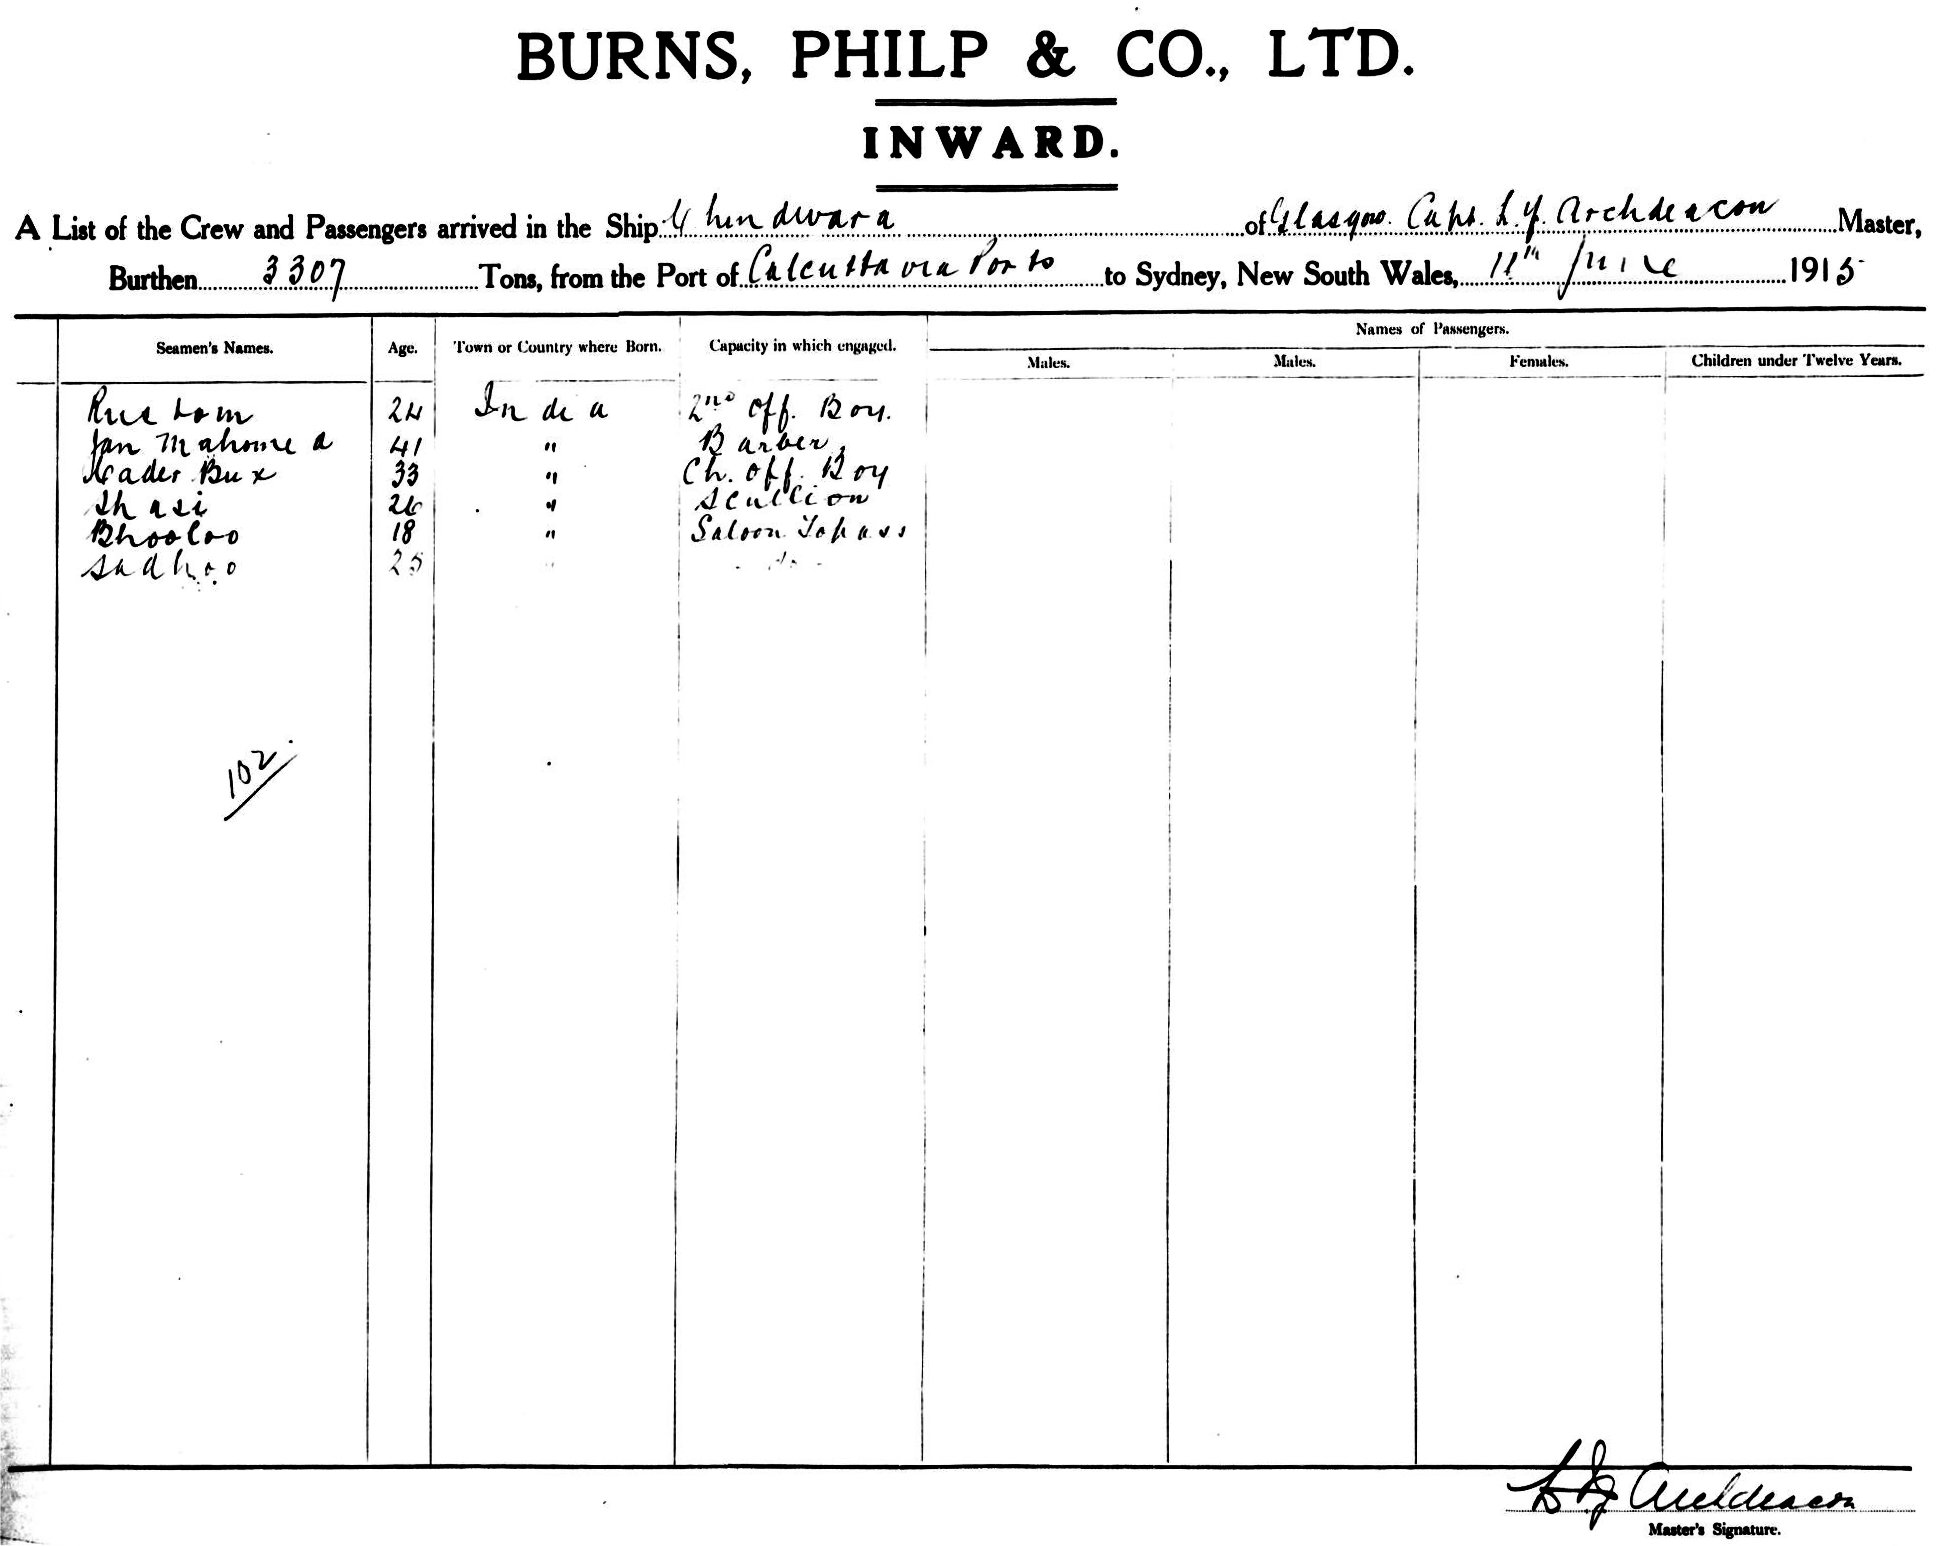 BURNS, PHILP & CO., LTD.
INWARD.
A List of the Crew and Passengers arrived in the Ship Chindwara of Glasgow. Capt. L. Y. Archdeacon Master,
Burthen 3307 Tons, from the Port of Calcutta via Ports to Sydney, New South Wales, 11th June 1915
Names of Passengers.
Seamen's Names. Age. Town or Country where Born. Capacity in which engaged. Males. Males. Females. Children under Twelve Years.
Rustom 24 India 2nd Off. Boy.
Jan Mahomed 41 " Barber
Kader Bux 33 " Ch. Off. Boy
Shasi 26 " Scullion
Bhooloo 18 " Saloon Topass
Sadhoo 25 " - do -
102
Archdeacon
Master's Signature.